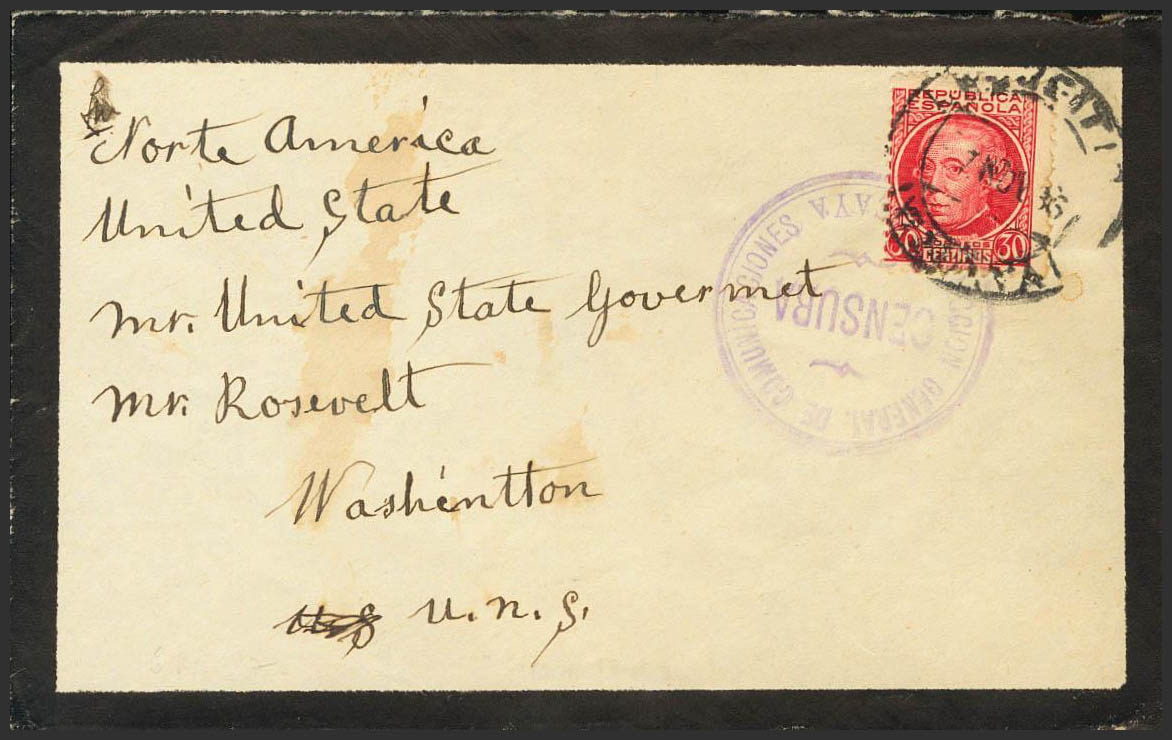 Norte America
United State
Mr. United State Govermet
Mr. Rosevelt
Washintton
U.N.S.
REPÚBLICA
ESPAÑOLA
30 CORREOS 30
CENTIMOS
7 NOV 36
GENERAL DE COMUNICACIONES
CENSURA